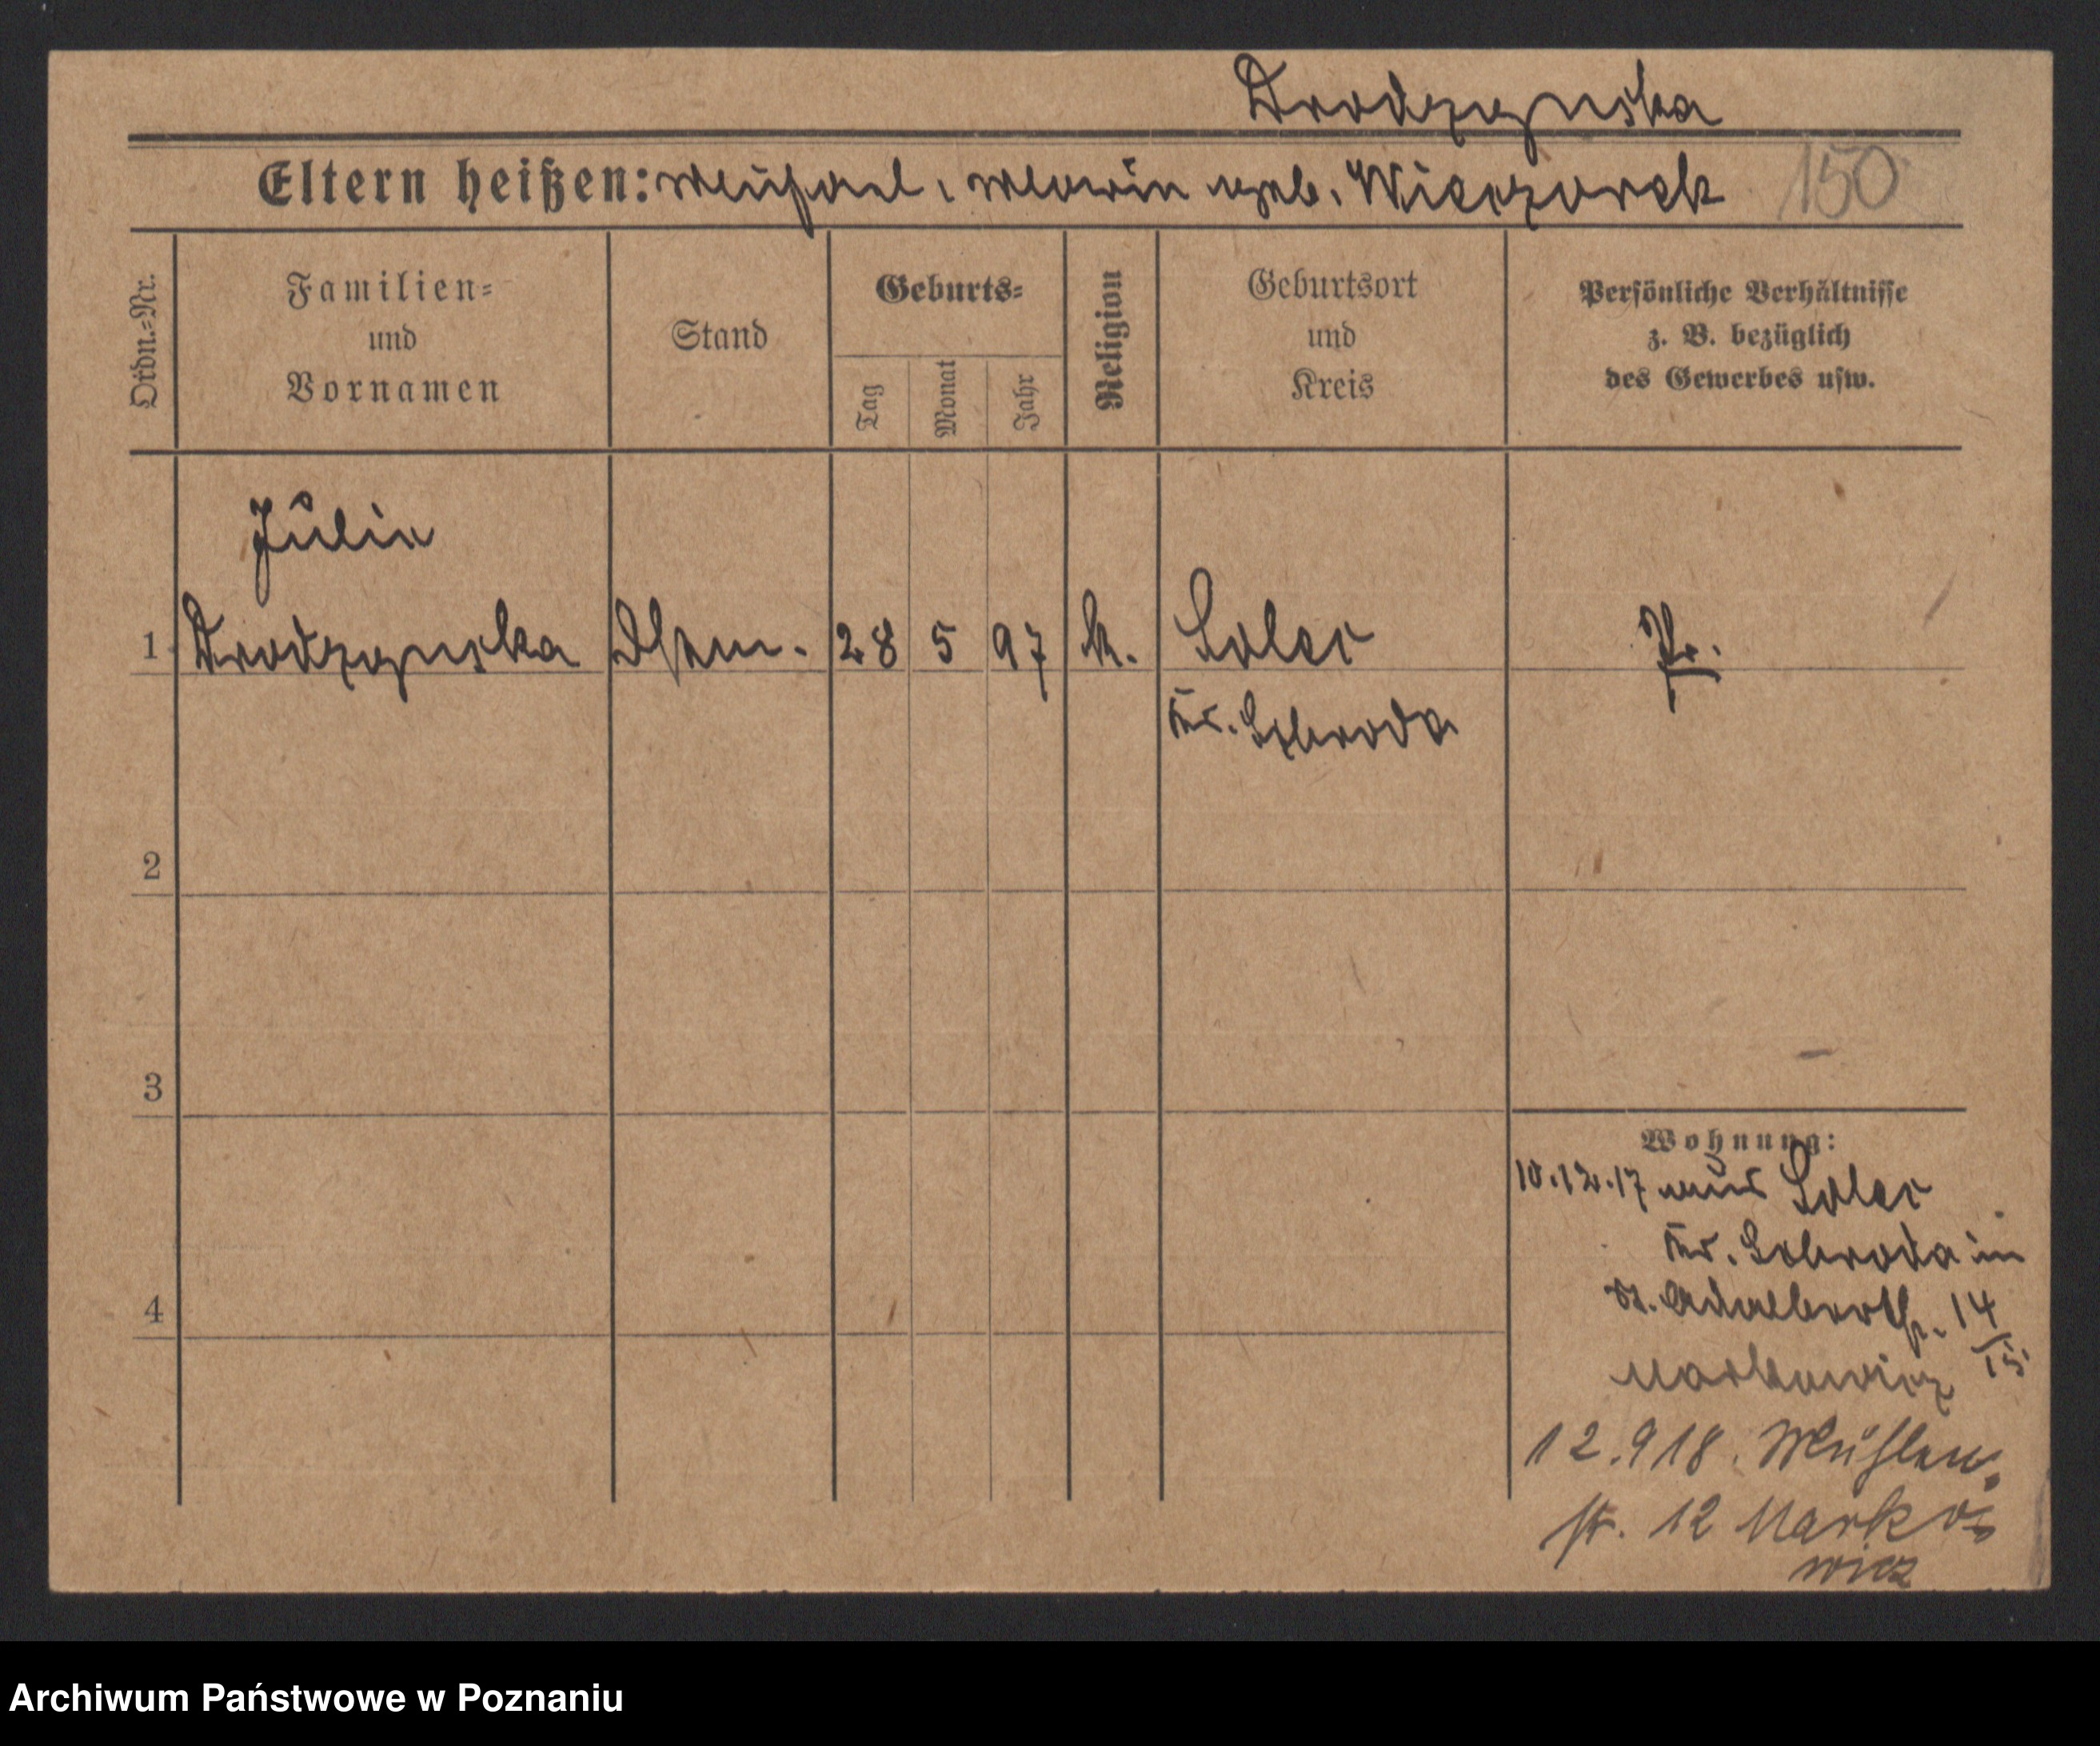 Drodzynska
Eltern heißen: Michael, Marie geb. Wieczorek 150
Ordn.-Nr.
Familien-
und
Vornamen
Stand
Geburts-
Tag
Monat
Jahr
Religion
Geburtsort
und
Kreis
Persönliche Verhältnisse
z. B. bezüglich
des Gewerbes usw.
Julie
1 Drodzynska 28 5 97 k. Solec Pr.
Kr. Schroda
2
3
4
Wohnung:
10.12.17 aus Solec
Kr. Schroda in
St. Adalbertstr. 14
/15
Markowicz
12.9 18. Mühlen-
str. 12 Marko-
wicz
Archiwum Państwowe w Poznaniu